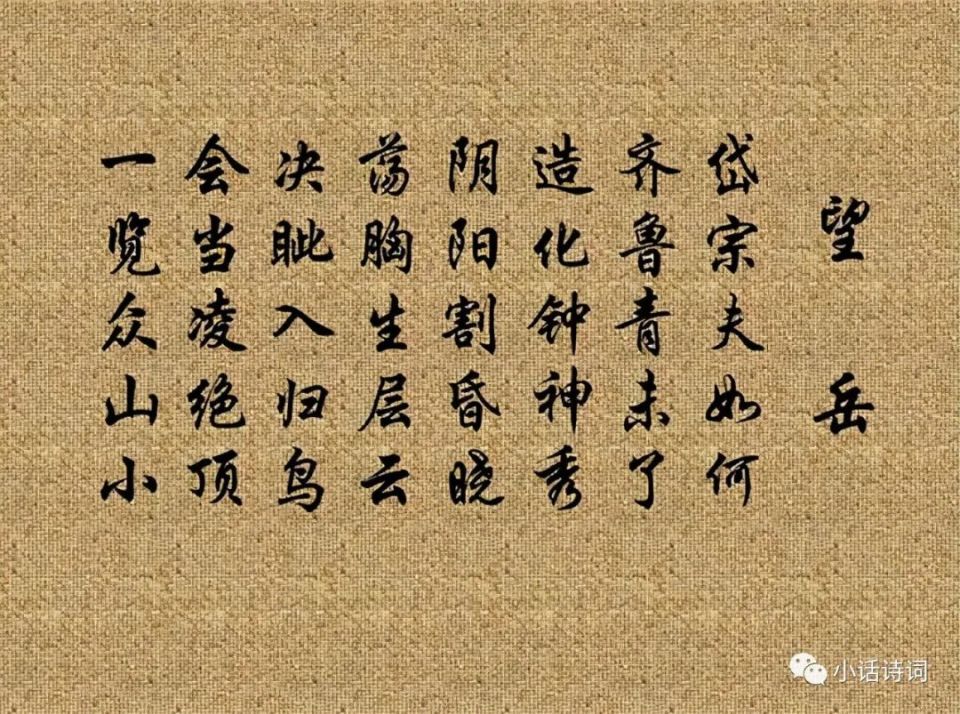 望岳
岱宗夫如何
齐鲁青未了
造化钟神秀
阴阳割昏晓
荡胸生层云
决眦入归鸟
会当凌绝顶
一览众山小
小话诗词